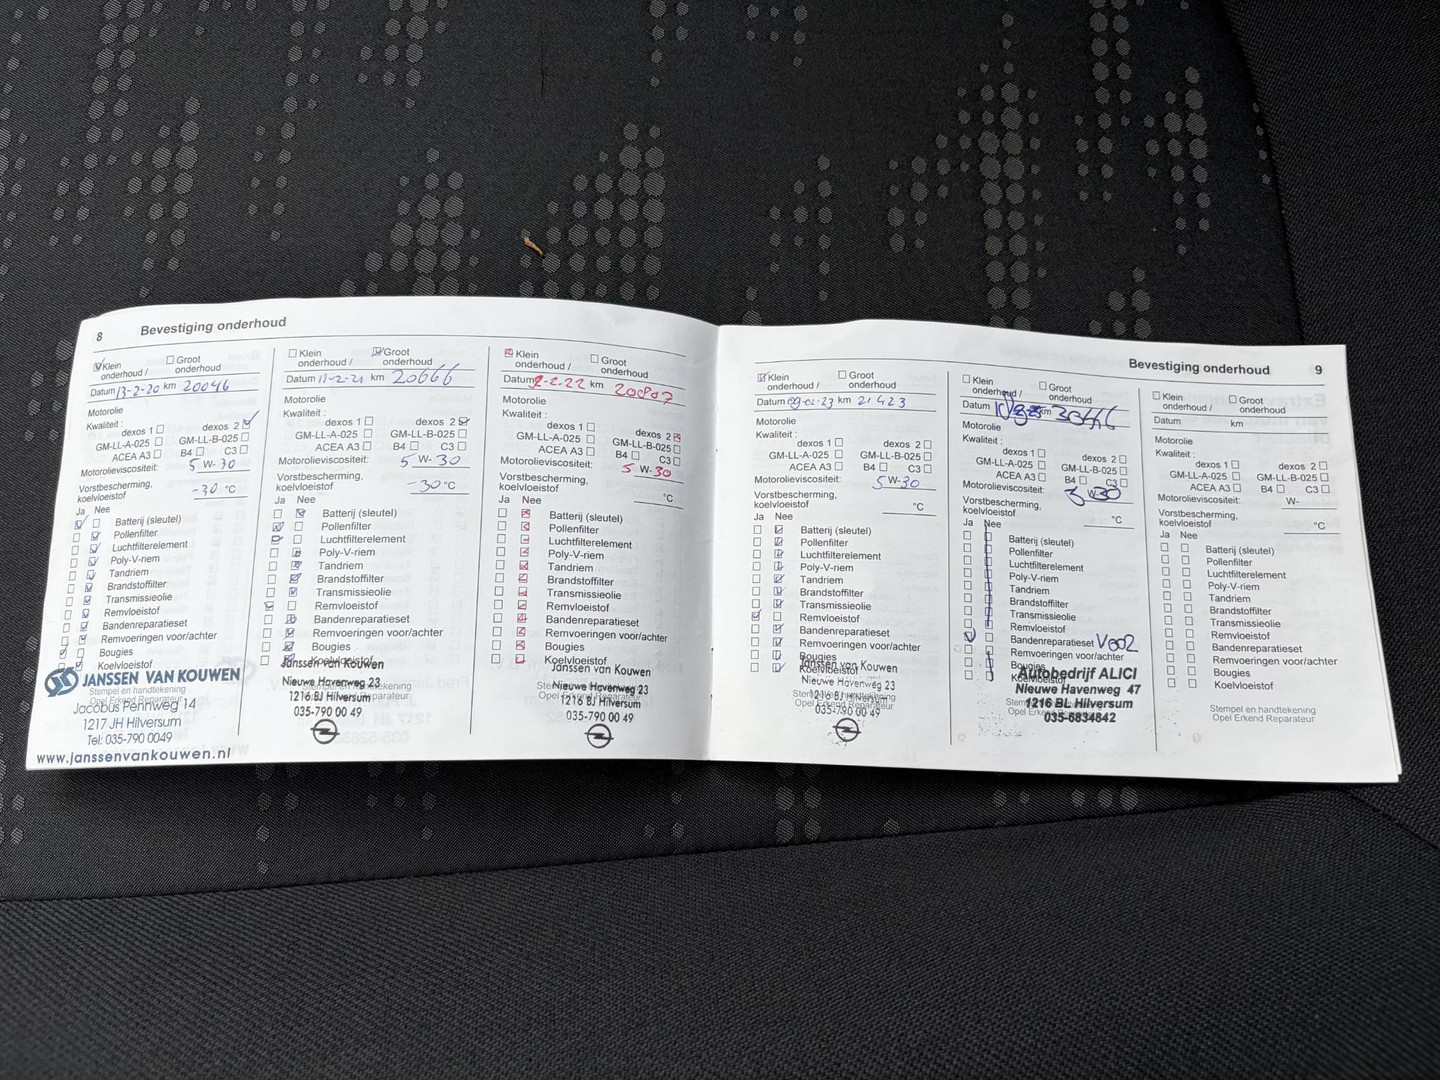 8 Bevestiging onderhoud
Klein onderhoud / Groot onderhoud
Datum 13-2-20 km 20046
Motorolie
Kwaliteit :
dexos 1 dexos 2
GM-LL-A-025 GM-LL-B-025
ACEA A3 B4 C3
Motorolieviscositeit: 5 W- 30
Vorstbescherming,
koelvloeistof -30 °C
Ja Nee
Batterij (sleutel)
Pollenfilter
Luchtfilterelement
Poly-V-riem
Tandriem
Brandstoffilter
Transmissieolie
Remvloeistof
Bandenreparatieset
Remvoeringen voor/achter
Bougies
Koelvloeistof
JANSSEN VAN KOUWEN
Stempel en handtekening
Opel Erkend Reparateur
Jacobus Pennweg 14
1217 JH Hilversum
Tel: 035-790 0049
www.janssenvankouwen.nl
Klein onderhoud / Groot onderhoud
Datum 11-2-21 km 20666
Motorolie
Kwaliteit :
dexos 1 dexos 2
GM-LL-A-025 GM-LL-B-025
ACEA A3 B4 C3
Motorolieviscositeit: 5 W- 30
Vorstbescherming,
koelvloeistof -30 °C
Ja Nee
Batterij (sleutel)
Pollenfilter
Luchtfilterelement
Poly-V-riem
Tandriem
Brandstoffilter
Transmissieolie
Remvloeistof
Bandenreparatieset
Remvoeringen voor/achter
Bougies
Koelvloeistof
Janssen van Kouwen
Nieuwe Havenweg 23
1216 BJ Hilversum
035-790 00 49
Klein onderhoud / Groot onderhoud
Datum 2-2-22 km 20807
Motorolie
Kwaliteit :
dexos 1 dexos 2
GM-LL-A-025 GM-LL-B-025
ACEA A3 B4 C3
Motorolieviscositeit: 5 W- 30
Vorstbescherming,
koelvloeistof °C
Ja Nee
Batterij (sleutel)
Pollenfilter
Luchtfilterelement
Poly-V-riem
Tandriem
Brandstoffilter
Transmissieolie
Remvloeistof
Bandenreparatieset
Remvoeringen voor/achter
Bougies
Koelvloeistof
Janssen van Kouwen
Nieuwe Havenweg 23
1216 BJ Hilversum
035-790 00 49
Bevestiging onderhoud 9
Klein onderhoud / Groot onderhoud
Datum 09-02-23 km 21423
Motorolie
Kwaliteit :
dexos 1 dexos 2
GM-LL-A-025 GM-LL-B-025
ACEA A3 B4 C3
Motorolieviscositeit: 5 W-30
Vorstbescherming,
koelvloeistof °C
Ja Nee
Batterij (sleutel)
Pollenfilter
Luchtfilterelement
Poly-V-riem
Tandriem
Brandstoffilter
Transmissieolie
Remvloeistof
Bandenreparatieset
Remvoeringen voor/achter
Bougies
Koelvloeistof
Janssen van Kouwen
Nieuwe Havenweg 23
1216 BJ Hilversum
035-790 00 49
Klein onderhoud / Groot onderhoud
Datum km
Motorolie
Kwaliteit :
dexos 1 dexos 2
GM-LL-A-025 GM-LL-B-025
ACEA A3 B4 C3
Motorolieviscositeit: 5 W-30
Vorstbescherming,
koelvloeistof °C
Ja Nee
Batterij (sleutel)
Pollenfilter
Luchtfilterelement
Poly-V-riem
Tandriem
Brandstoffilter
Transmissieolie
Remvloeistof
Bandenreparatieset
Remvoeringen voor/achter
Bougies
Koelvloeistof
Autobedrijf ALICI
Nieuwe Havenweg 47
1216 BL Hilversum
035-6834842
Klein onderhoud / Groot onderhoud
Datum km
Motorolie
Kwaliteit :
dexos 1 dexos 2
GM-LL-A-025 GM-LL-B-025
ACEA A3 B4 C3
Motorolieviscositeit: W-
Vorstbescherming,
koelvloeistof °C
Ja Nee
Batterij (sleutel)
Pollenfilter
Luchtfilterelement
Poly-V-riem
Tandriem
Brandstoffilter
Transmissieolie
Remvloeistof
Bandenreparatieset
Remvoeringen voor/achter
Bougies
Koelvloeistof
Stempel en handtekening
Opel Erkend Reparateur